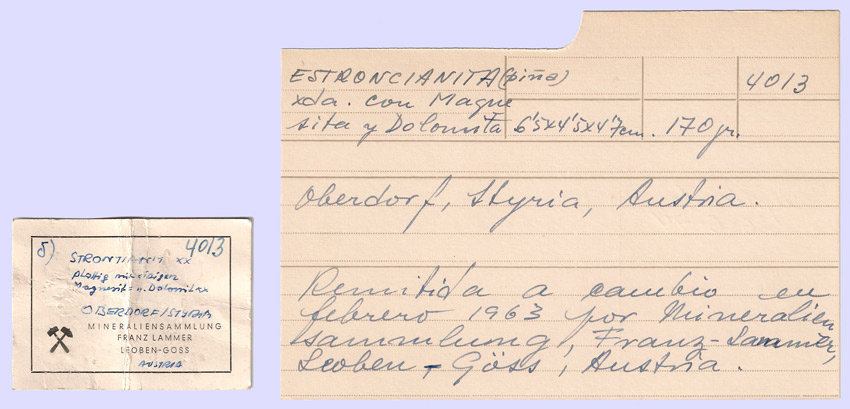 б) 4013
STRONTIANIT XX
Magnesit- u. Dolomit xx
OBERDORF/STYRIA
MINERALIENSAMMLUNG
FRANZ LAMMER
LEOBEN-GÖSS
AUSTRIA
ESTRONCIANITA (piña) 4013
xda. con Magne
sita y Dolomita 6'5x4'5x4'7cm. 170 gr.
Oberdorf, Styria, Austria.
Remitida a cambio en
febrero 1963 por Mineralien
sammlung, Franz-Lammer,
Leoben-Göss, Austria.